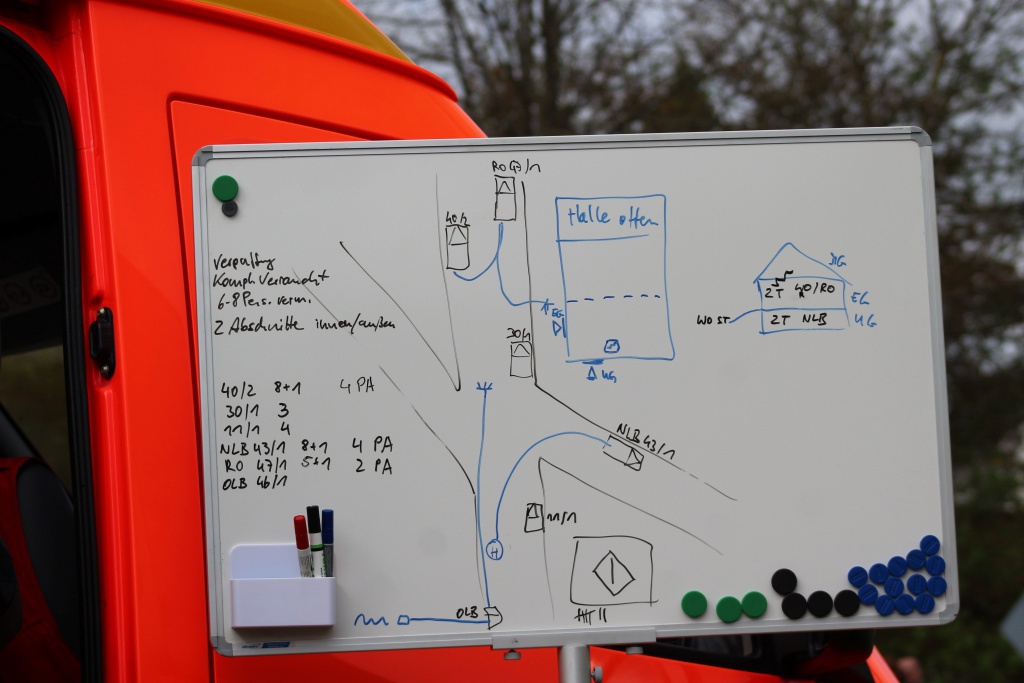 RO 47/1
40/2
Halle offen
Verpaffung
Komplt Verraucht
6-8 Pers. verm.
2 Abschnitte innen/außen
DG
2T 40/RO
EG
WO ST
2T NLB
UG
EG
30/1
UG
40/2 8+1 4 PA
30/1 3
11/1 4
NLB 43/1 8+1 4 PA
RO 47/1 5+1 2 PA
OLB 46/1
NLB 43/1
11/1
H
OLB